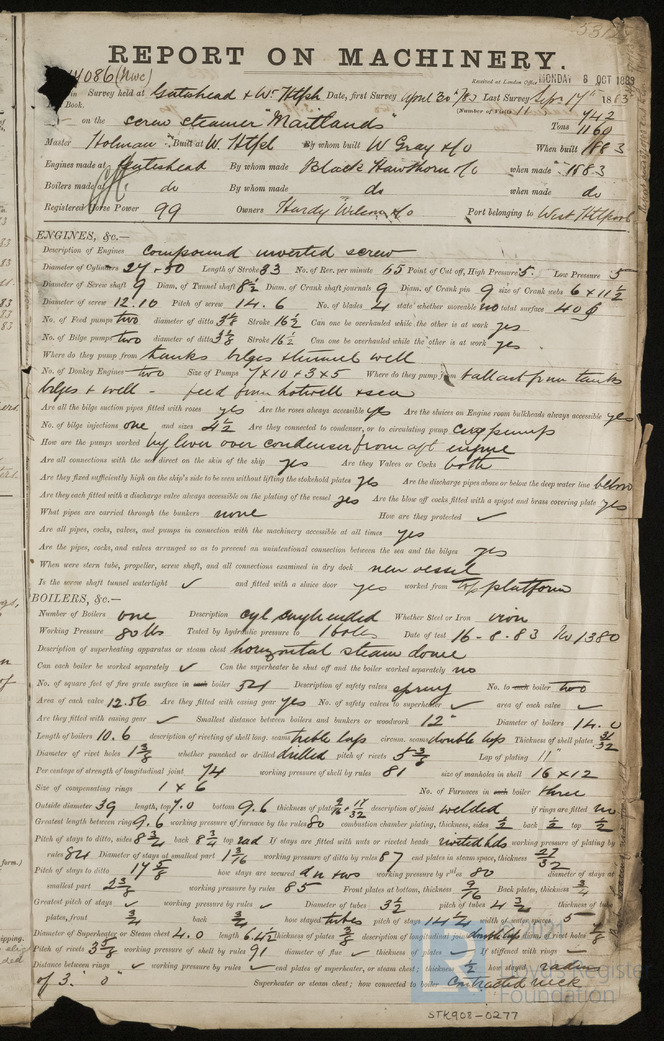 REPORT ON MACHINERY.
14086 (Nwc)
Received at London Office MONDAY 8 OCT 1883
in Survey held at Gateshead & Wt Htpl Date, first Survey April 30th /83 Last Survey Sept 17th 1883
Book. (Number of Visits 11
on the screw steamer "Maitlands" Tons 742 1160
Master Holman Built at W. Htpl By whom built W Gray & Co When built 1883
Engines made at Gateshead By whom made Black Hawthorn & Co when made 1883
Boilers made at do By whom made do when made do
Registered Horse Power 99 Owners Hardy Wilson & Co Port belonging to West Htlpool
ENGINES, &c.—
Description of Engines Compound inverted screw
Diameter of Cylinders 27 + 50 Length of Stroke 33 No. of Rev. per minute 65 Point of Cut off, High Pressure .5 Low Pressure .5
Diameter of Screw shaft 9 Diam. of Tunnel shaft 8½ Diam. of Crank shaft journals 9 Diam. of Crank pin 9 size of Crank webs 6 x 11½
Diameter of screw 12.10 Pitch of screw 14.6 No. of blades 4 state whether moveable no total surface 40
No. of Feed pumps two diameter of ditto 3⅛ Stroke 16½ Can one be overhauled while the other is at work yes
No. of Bilge pumps two diameter of ditto 3⅛ Stroke 16½ Can one be overhauled while the other is at work yes
Where do they pump from tanks bilges & tunnel well
No. of Donkey Engines two Size of Pumps 7 x 10 + 3 x 5 Where do they pump from ballast from tanks
bilges & well - feed from hotwell & sea
Are all the bilge suction pipes fitted with roses yes Are the roses always accessible yes Are the sluices on Engine room bulkheads always accessible yes
No. of bilge injections one and sizes 4½ Are they connected to condenser, or to circulating pump circ pump
How are the pumps worked by lever over condenser from aft engine
Are all connections with the sea direct on the skin of the ship yes Are they Valves or Cocks both
Are they fixed sufficiently high on the ship's side to be seen without lifting the stokehold plates yes Are the discharge pipes above or below the deep water line below
Are they each fitted with a discharge valve always accessible on the plating of the vessel yes Are the blow off cocks fitted with a spigot and brass covering plate yes
What pipes are carried through the bunkers none How are they protected ✓
Are all pipes, cocks, valves, and pumps in connection with the machinery accessible at all times yes
Are the pipes, cocks, and valves arranged so as to prevent an unintentional connection between the sea and the bilges yes
When were stern tube, propeller, screw shaft, and all connections examined in dry dock new vessel
Is the screw shaft tunnel watertight ✓ and fitted with a sluice door yes worked from top platform
BOILERS, &c.—
Number of Boilers one Description cyl single ended Whether Steel or Iron iron
Working Pressure 80 lbs Tested by hydraulic pressure to 160 lbs Date of test 16-8-83 No 1380
Description of superheating apparatus or steam chest horizontal steam dome
Can each boiler be worked separately ✓ Can the superheater be shut off and the boiler worked separately no
No. of square feet of fire grate surface in each boiler 52½ Description of safety valves spring No. to each boiler two
Area of each valve 12.56 Are they fitted with easing gear yes No. of safety valves to superheater ✓ area of each valve ✓
Are they fitted with easing gear ✓ Smallest distance between boilers and bunkers or woodwork 12" Diameter of boilers 14.0
Length of boilers 10.6 description of riveting of shell long. seams treble laps circum. seams double laps Thickness of shell plates 31/32
Diameter of rivet holes 1⅜ whether punched or drilled drilled pitch of rivets 5⅜ Lap of plating 11"
Percentage of strength of longitudinal joint 74 working pressure of shell by rules 81 size of manholes in shell 16 x 12
Size of compensating rings 1 x 6 No. of Furnaces in each boiler three
Outside diameter 39 length, top 7.0 bottom 9.6 thickness of plates description of joint welded if rings are fitted no
Greatest length between rings 9.6 working pressure of furnace by the rules 80 combustion chamber plating, thickness, sides ½ back ½ top ½
Pitch of stays to ditto, sides 8¾ back 8¾ top rad If stays are fitted with nuts or riveted heads riveted hds working pressure of plating by
rules 84 Diameter of stays at smallest part 1 3/16 working pressure of ditto by rules 87 end plates in steam space, thickness 27/32
Pitch of stays to ditto 17⅝ how stays are secured d n & ws working pressure by rules 80 diameter of stays at
smallest part 2⅜ working pressure by rules 85 Front plates at bottom, thickness 9/16 Back plates, thickness ¾
Greatest pitch of stays ✓ working pressure by rules ✓ Diameter of tubes 3½ pitch of tubes 4¾ thickness of tube
plates, front ¾ back ¾ how stayed tubes pitch of stays 14½ width of water spaces 5
Diameter of Superheater or Steam chest 4.0 length 6.4½ thickness of plates ⅜ description of longitudinal joint double lap diam. of rivet holes ⅞
Pitch of rivets 3⅜ working pressure of shell by rules 91 diameter of flue ✓ thickness of plates ✓ If stiffened with rings ✓
Distance between rings ✓ working pressure by rules ✓ end plates of superheater, or steam chest; thickness ½ how stayed radius
of 3.0" Superheater or steam chest; how connected to boiler Contracted neck
© 2021
Lloyd's Register
Foundation
STK908-0277